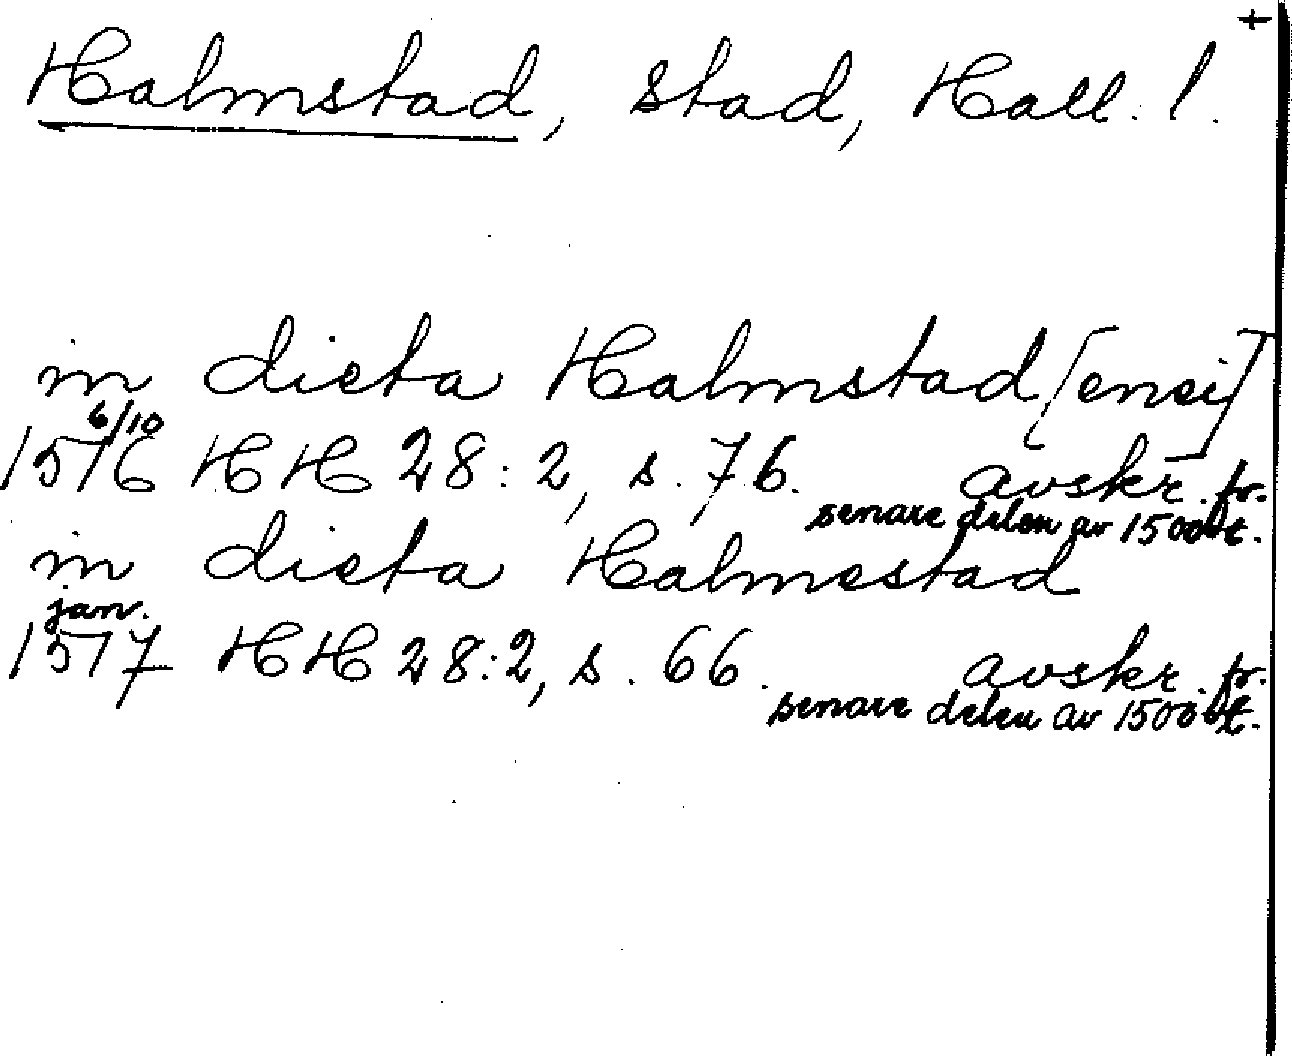 +
Halmstad, stad, Hall. l.
in dieta Halmstad [ensi]
6/10
1516 HH 28:2, s. 76. avskr. fr.
senare delen av 1500-t.
in dieta Halmestad
jan.
1517 HH 28:2, s. 66. avskr. fr.
senare delen av 1500-t.